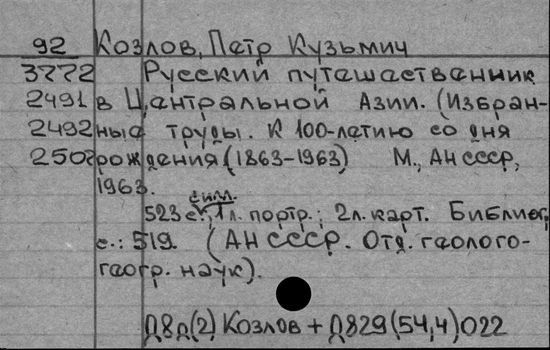 92 Козлов, Петр Кузьмич
3772 Русский путешественник
2491 в Центральной Азии. (Избран-
2492 ные труды. К 100-летию со дня
2507 рождения (1863-1963) М., АН СССР,
1963.
с илл.
523 с., 1 л. портр.; 2 л. карт. Библиог,
с.: 519. (АН СССР. Отд. геолого-
геогр. наук).
Д8д(2) Козлов + Д829(54,4)022